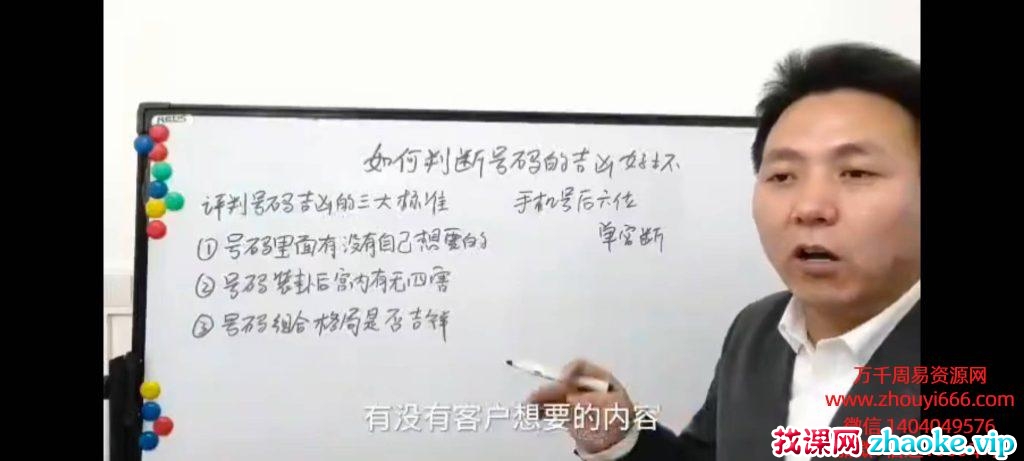 如何判断号码的吉凶好坏
评判号码吉凶的三大标准
手机号后六位
单宫断
①号码里面有没有自己想要的
②号码装卦后宫内有无四害
③号码组合格局是否吉祥
有没有客户想要的内容
万千周易资源网
www.zhouyi666.com
微信 1404049576
找课网 zhaoke.vip